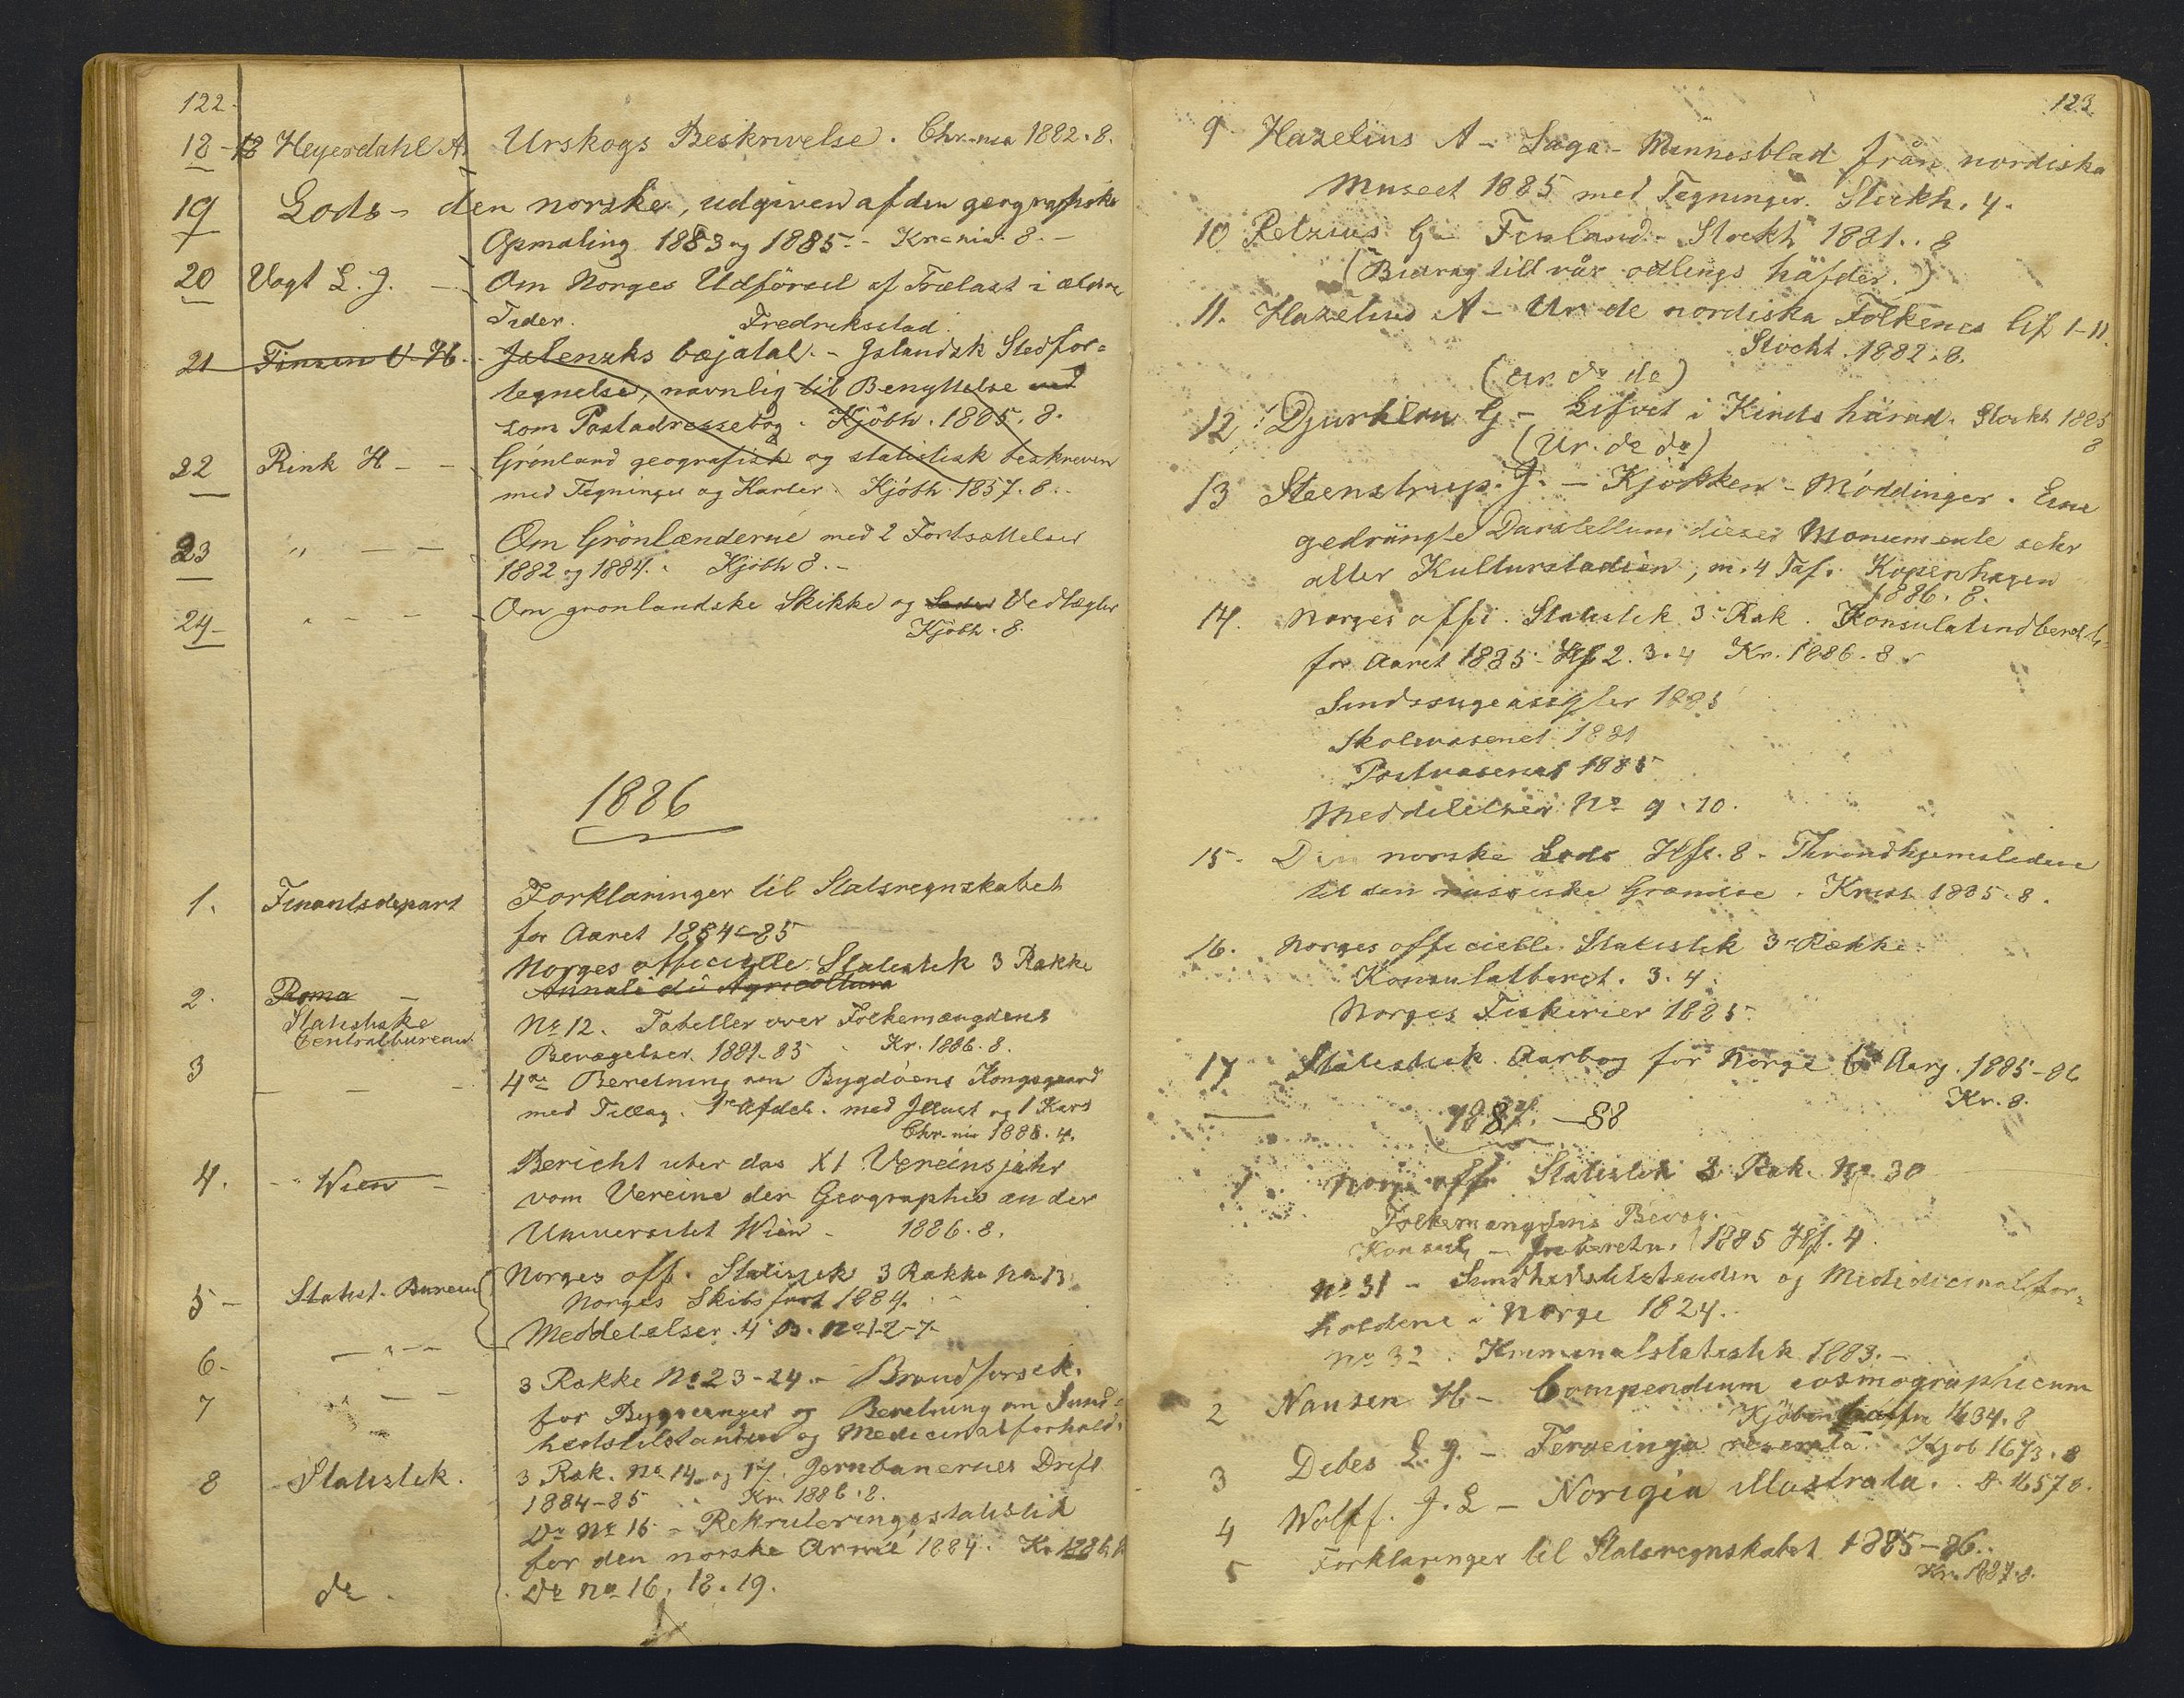 122.
18 - 18 Heyerdahl A. Urskogs Beskrivelse. Chr.nia 1882. 8.
19 Lods - den norske, udgiven af den geografiske
Opmaling 1883 og 1885. - Kr.nia. 8. -
20 Vogt L. J. - Om Norges Udförsel af Trælast i ældre
Tider. Fredriksstad.
21 Finsen V. H. - Jslenzks bæjatal. - Jslandsk Stedfor=
tegnelse, navnlig til Benyttelse ved
som Postadressebog. Kjöbh. 1885. 8.
22 Rink H - - Grönland geografisk og statistisk beskreven
med Tegninger og Karter. Kjöbh. 1857. 8. -
23 " - - Om Grönlænderne med 2 Fortsættelser
1882 og 1884. Kjöbh 8. -
24 - " - - Om grønlandske Skikke og Vedtægter
Kjöbh. 8.
1886
1. Finantsdepart Forklaringer til Statsregnskabet
for Aaret 1884-85
Norges officielle Statistik 3 Række
2. Roma - Annali di Agricoltura
Statistiske
Centralbureau
No 12. Tabeller over Folkemængdens
Bevægelser. 1881-83 Kr. 1886. 8.
3 - - - 4de Beretning om Bygdöens Kongsgaard
med Tillæg. 1re Afdel. med Jllust og 1 Kart
Chr.nia 1886. 4.
4. - Wien - Bericht uber das XI Vereinsjahr
vom Vereine der Geographie an der
Universitet Wien - 1886. 8.
5 - Statist. Bureau Norges off. Statistik 3 Række No 13
Norges Skibsfart 1884.
Meddelelser. 4 B. No 1-2-7-
6. - " - - 3 Række No 23-24. - Brandforsik.
7 " - - for Bygninger og Beretning om Sund=
hedstilstanden og Medicinalforhold.
8 Statistik. 3 Ræk. No 14 og 17. Jernbanernes Drift
1884-85 Kr. 1886. 8.
Do No 15 - Rekruteringsstatistik
for den norske Armé 1884. Kr. 1886. 8
do. Do No 16. 18. 19.
123.
9 Hazelius A - Saga - Minnesblad från nordiska
Museet 1885 med Tegninger. Stockh. 4.
10 Retzius G - Finland. Stockh 1881. 8
(Bidrag till vår odlings häfder.)
11. Hazelius A - Ur de nordiska Folkenes lif 1-11.
Stockh. 1882. 8.
(ur do do)
12. Djurklou G - Lifvet i Kinds härad. Stockh 1885
8
(Ur. do do)
13 Steenstrup. J. - Kjökken - Möddinger. Eine
gedrängte Darstellung dieser Monumente sehr
alter Kulturstadien, m. 4 Taf. Kopenhagen
1886. 8.
14. Norges offi. Statistik 3. Ræk. Konsulatindberet.
for Aaret 1885. Hf 2. 3. 4 Kr. 1886. 8.
Sindssygeasyler 1885
Skolevæsenet 1881
Postvæsenet 1885
Meddelelser No 9. 10.
15. Den norske Lods Hft. 8. Throndhjemsleden
til den russiske Grændse. Krist. 1885. 8.
16. Norges officielle. Statistik 3e Række
Konsulatberet. 3. 4.
Norges Fiskerier 1885.
17 Statistisk Aarbog for Norge 6 Aarg. 1885-86
Kr. 8.
1887. - 88
1 Norges offi Statistik 3 Ræk. No 30
Folkemængdens Bevæg.
Konsul - Jnberetn. 1885 Hf. 4.
No 31 - Sundhedstilstanden og Medicinalfor=
holdene i Norge 1824.
No 32. Kriminalstatistik 1883. -
2 Nansen H - Compendium cosmographicum
Kjöbenhafn 1634. 8
3 Debes L. J. - Feroeinga reserata. Kjob 1673. 8
4 Wolff. J. L - Norigia illustrata. 1657 8.
5 Forklaringer til Statsregnskabet 1885-86.
Kr. 1887. 8.